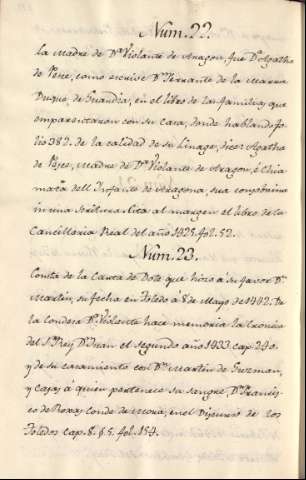 Num. 22.
La Madre de Dª Violante de Aragon, fue Dª Agatha
de Pesce, como escrive Dn Ferrante de la Marra
Duque de Guardia, en el libro de las familias, que
emparentaron con su Casa, donde hablando fo-
lio 382. de la calidad de su Linage, dice: Agatha
de Pesce, Madre de Dª Violante de Aragon, é chia
mata dell Infante de Aragona, sua concubina
in una scritura cita al margen el libro de la
Cancillaria Real del año 1425. fol. 52.
Num. 23.
Consta de la Carta de Dote que hizo á su favor Dn
Martin, su fecha en Toledo á 8 de Mayo de 1442. De
la Condesa Dª Violante hace memoria la Cronica
del Sr. Rey Dn Juan el segundo año 1433. cap. 240.
y de su casamiento con Dn Martin de Guzman,
y Casa, á quien pertenece su sangre Dn Francis-
co de Roxas, Conde de Mora, en el Discurso de los
Toledos cap. 8. §. 5. fol. 154.